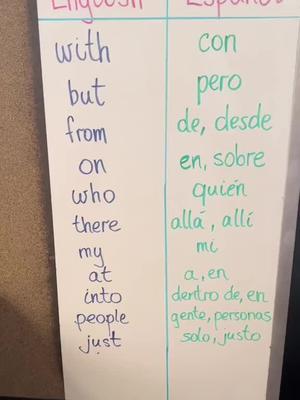 English Español
with con
but pero
from de, desde
on en, sobre
who quién
there allá, allí
my mi
at a, en
into dentro de, en
people gente, personas
just solo, justo